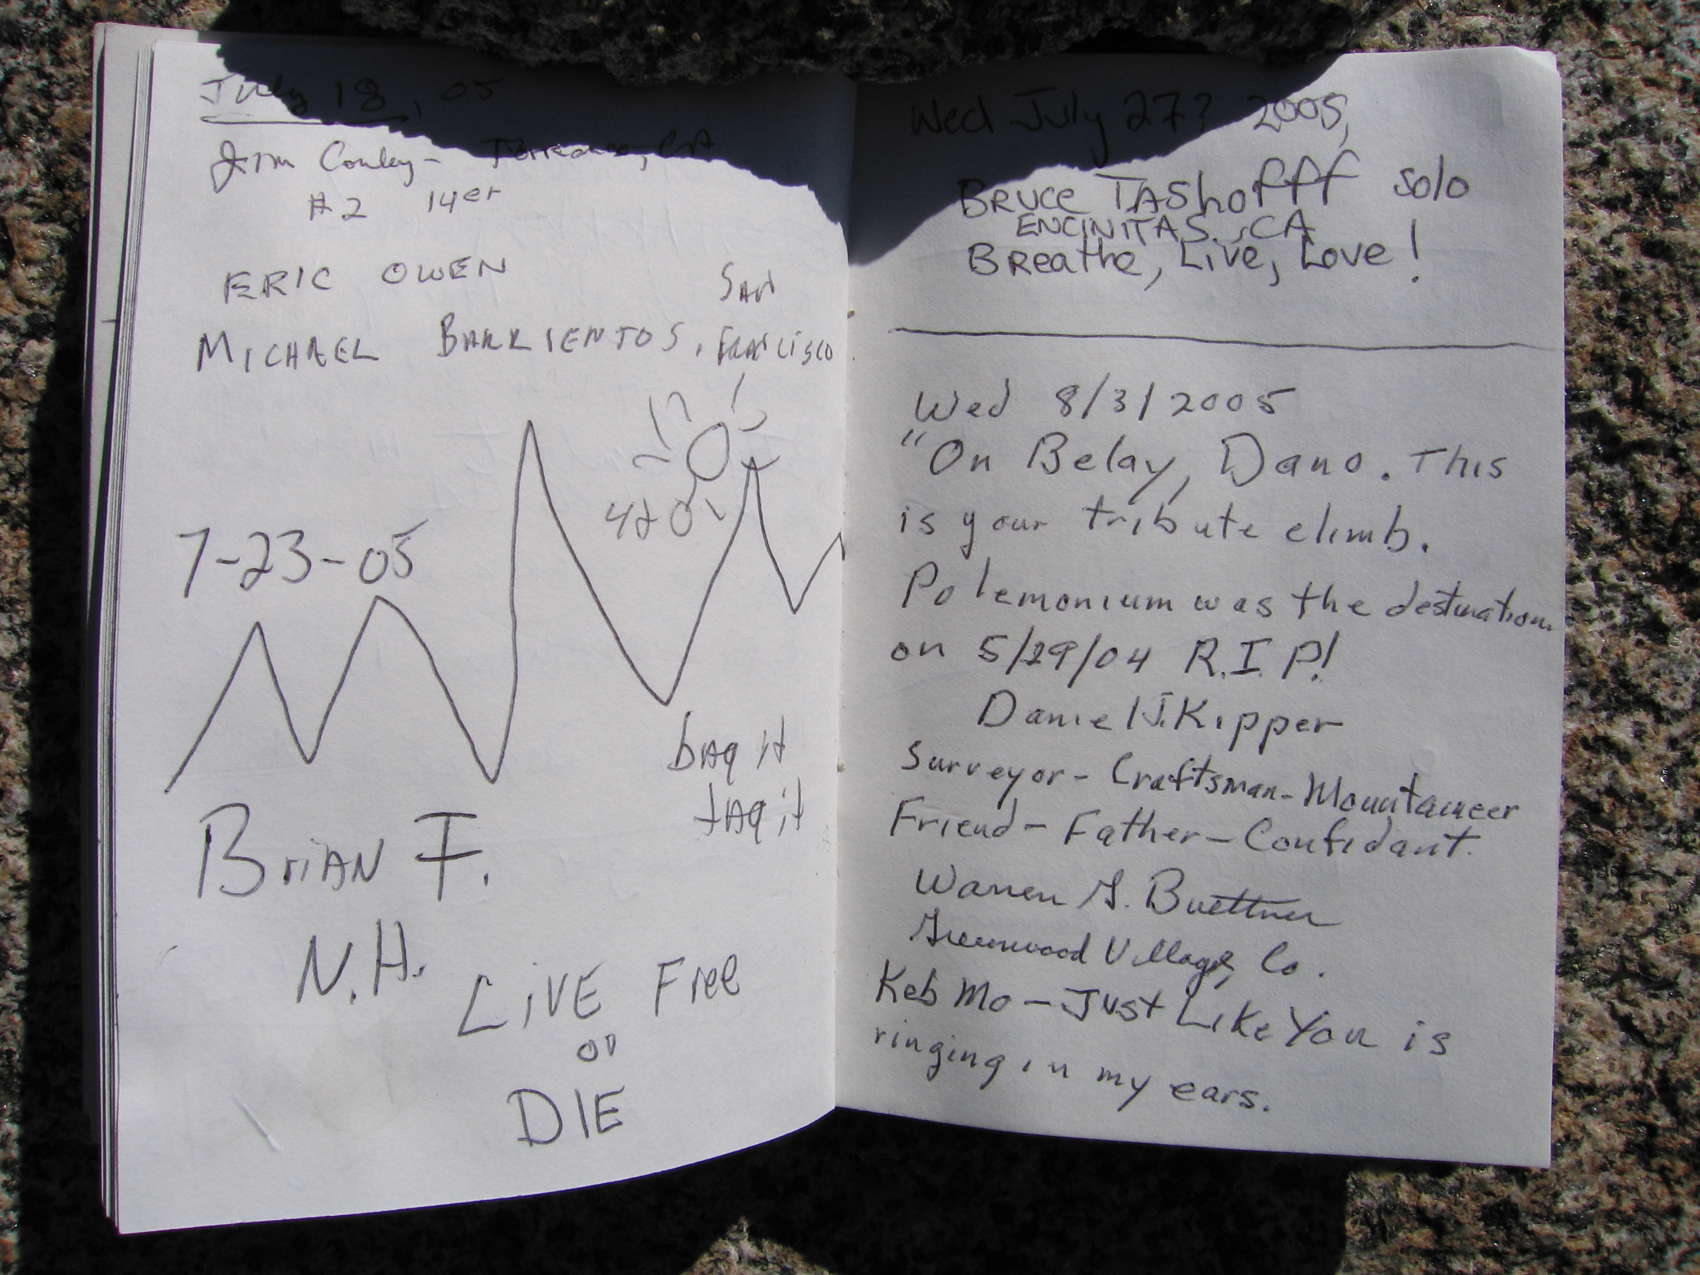 July 18, 05
Jim Conley - Torrance, CA
#2 14er
ERIC OWEN
MICHAEL BARRIENTOS, SAN FRANCISCO
420
7-23-05
bAg it
tAg it
BriAN F.
N.H.
LiVE Free
or
DIE
Wed July 27? 2005,
BRUCE TAShoffff solo
ENCINITAS, CA
BReathe, Live, Love!
Wed 8/3/2005
"On Belay, Dano. This
is your tribute climb.
Polemonium was the destination
on 5/29/04 R.I.P!
Daniel J. Kipper
Surveyor - Craftsman - Mountaineer
Friend - Father - Confidant.
Warren G. Buettner
Greenwood Village, Co.
Keb Mo - Just Like You is
ringing in my ears.